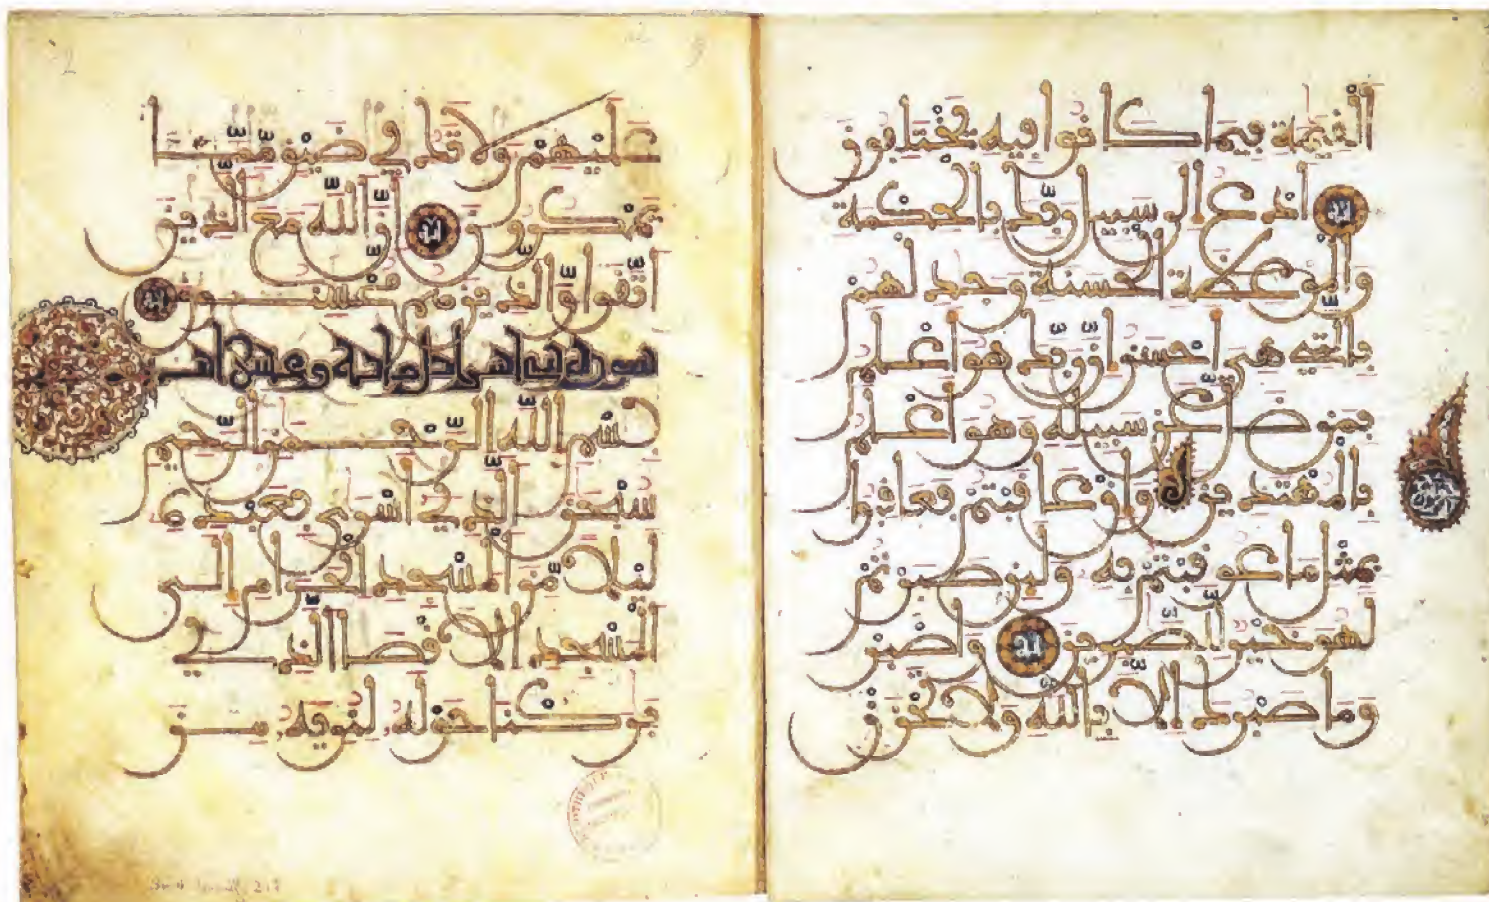 القيمة فيما كانوا فيه يختلفون
ادع الى سبيل ربك بالحكمة
والموعظة الحسنة وجدلهم
بالتي هي احسن ان ربك هو اعلم
بمن ضل عن سبيله وهو اعلم
بالمهتدين وان عاقبتم فعاقبوا
بمثل ما عوقبتم به ولئن صبرتم
لهو خير للصبرين واصبر
وما صبرك الا بالله ولا تحزن
2
عليهم ولا تك في ضيق مما
يمكرون ان الله مع الذين
اتقوا والذين هم محسنون
سورة بني اسراءيل ماية وعشر
بسم الله الرحمن الرحيم
سبحن الذي اسرى بعبده
ليلا من المسجد الحرام الى
المسجد الاقصا الذي
بركنا حوله لنريه من